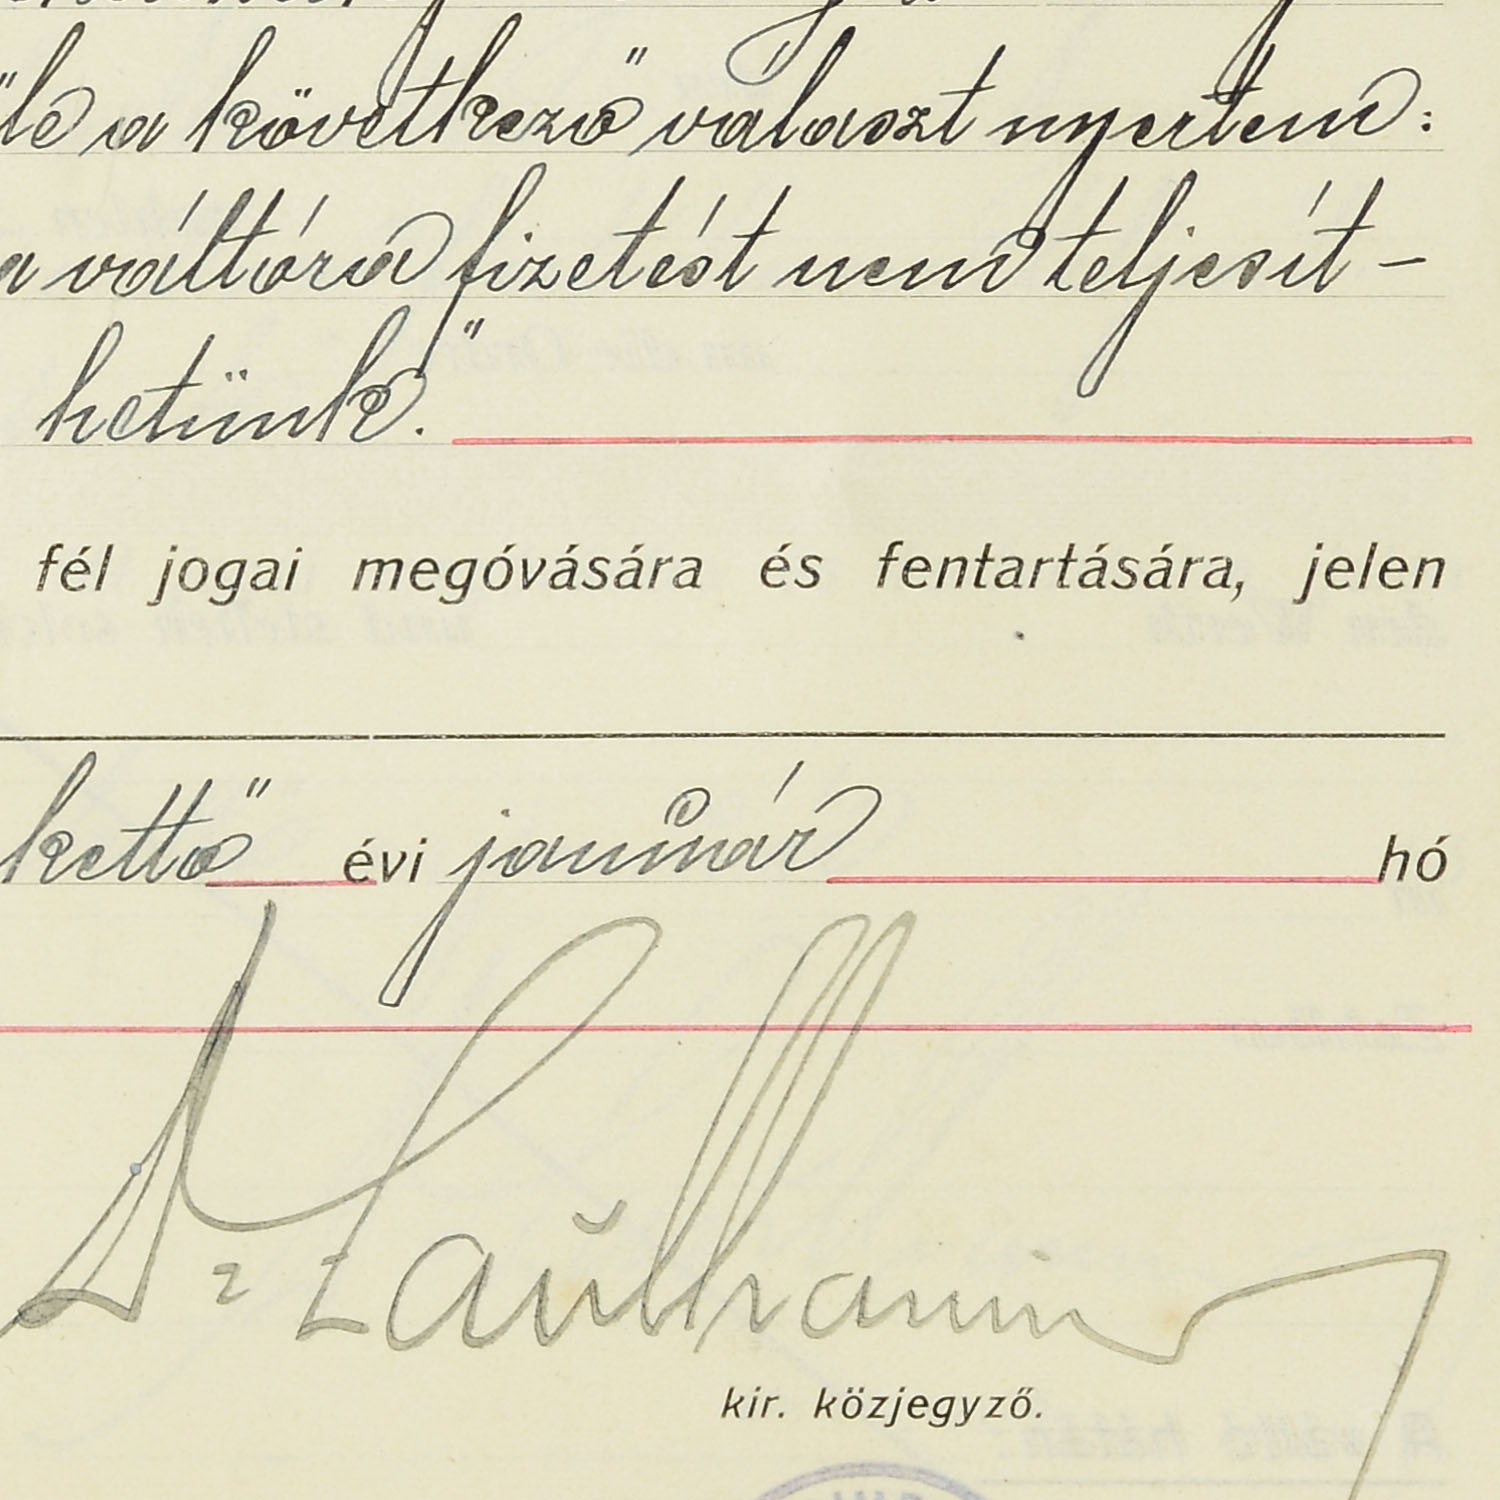 a következő választ nyertem:
a váltóra fizetést nem teljesít-
hetünk."
fél jogai megóvására és fentartására, jelen
kettő évi január hó
Dr
kir. közjegyző.